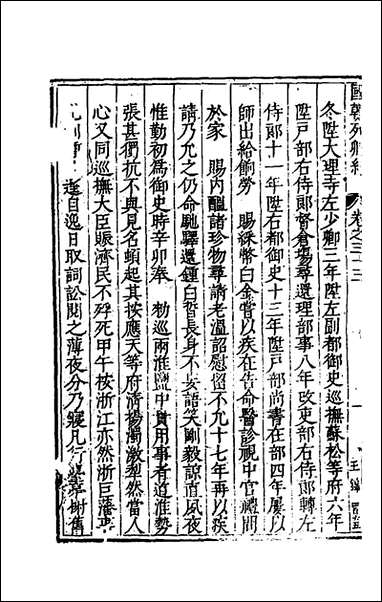 國朝列卿紀　卷之三十三
冬陞大理寺左少卿三年陞左副都御史巡撫蘇松等府六年
陞戶部右侍郎督倉場尋還理部事八年改吏部右侍郎轉左
侍郎十一年陞右都御史十三年陞戶部尚書在部四年屢以
師出給餉勞　賜綵幣白金嘗以疾在告命醫診視中官齎問
於家　賜內醞諸珍物尋請老溫詔慰留不允十七年再以疾
請乃允之仍命馳驛還鍾白皙長身不妄語笑剛毅諒直夙夜
惟勤初為御史時辛卯奉　勑巡兩淮鹽中貴用事者道淮勢
張甚獨抗不與見名頗起其按應天等府清揚濁激犁然當人
心又同巡撫大臣賑濟民不殍死甲午按浙江亦然浙巨藩
逸自逸日取詞訟閱之薄夜分乃寢凡行